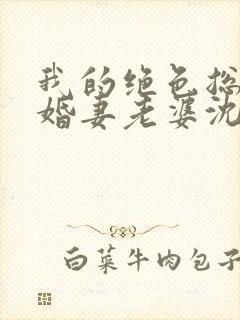 我的绝色总
婚妻老婆沈
白菜牛肉包子